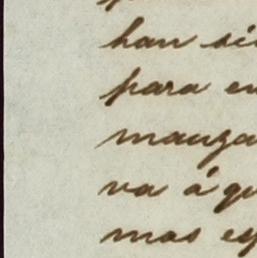 han si
para en
manza
va á qu
mas es